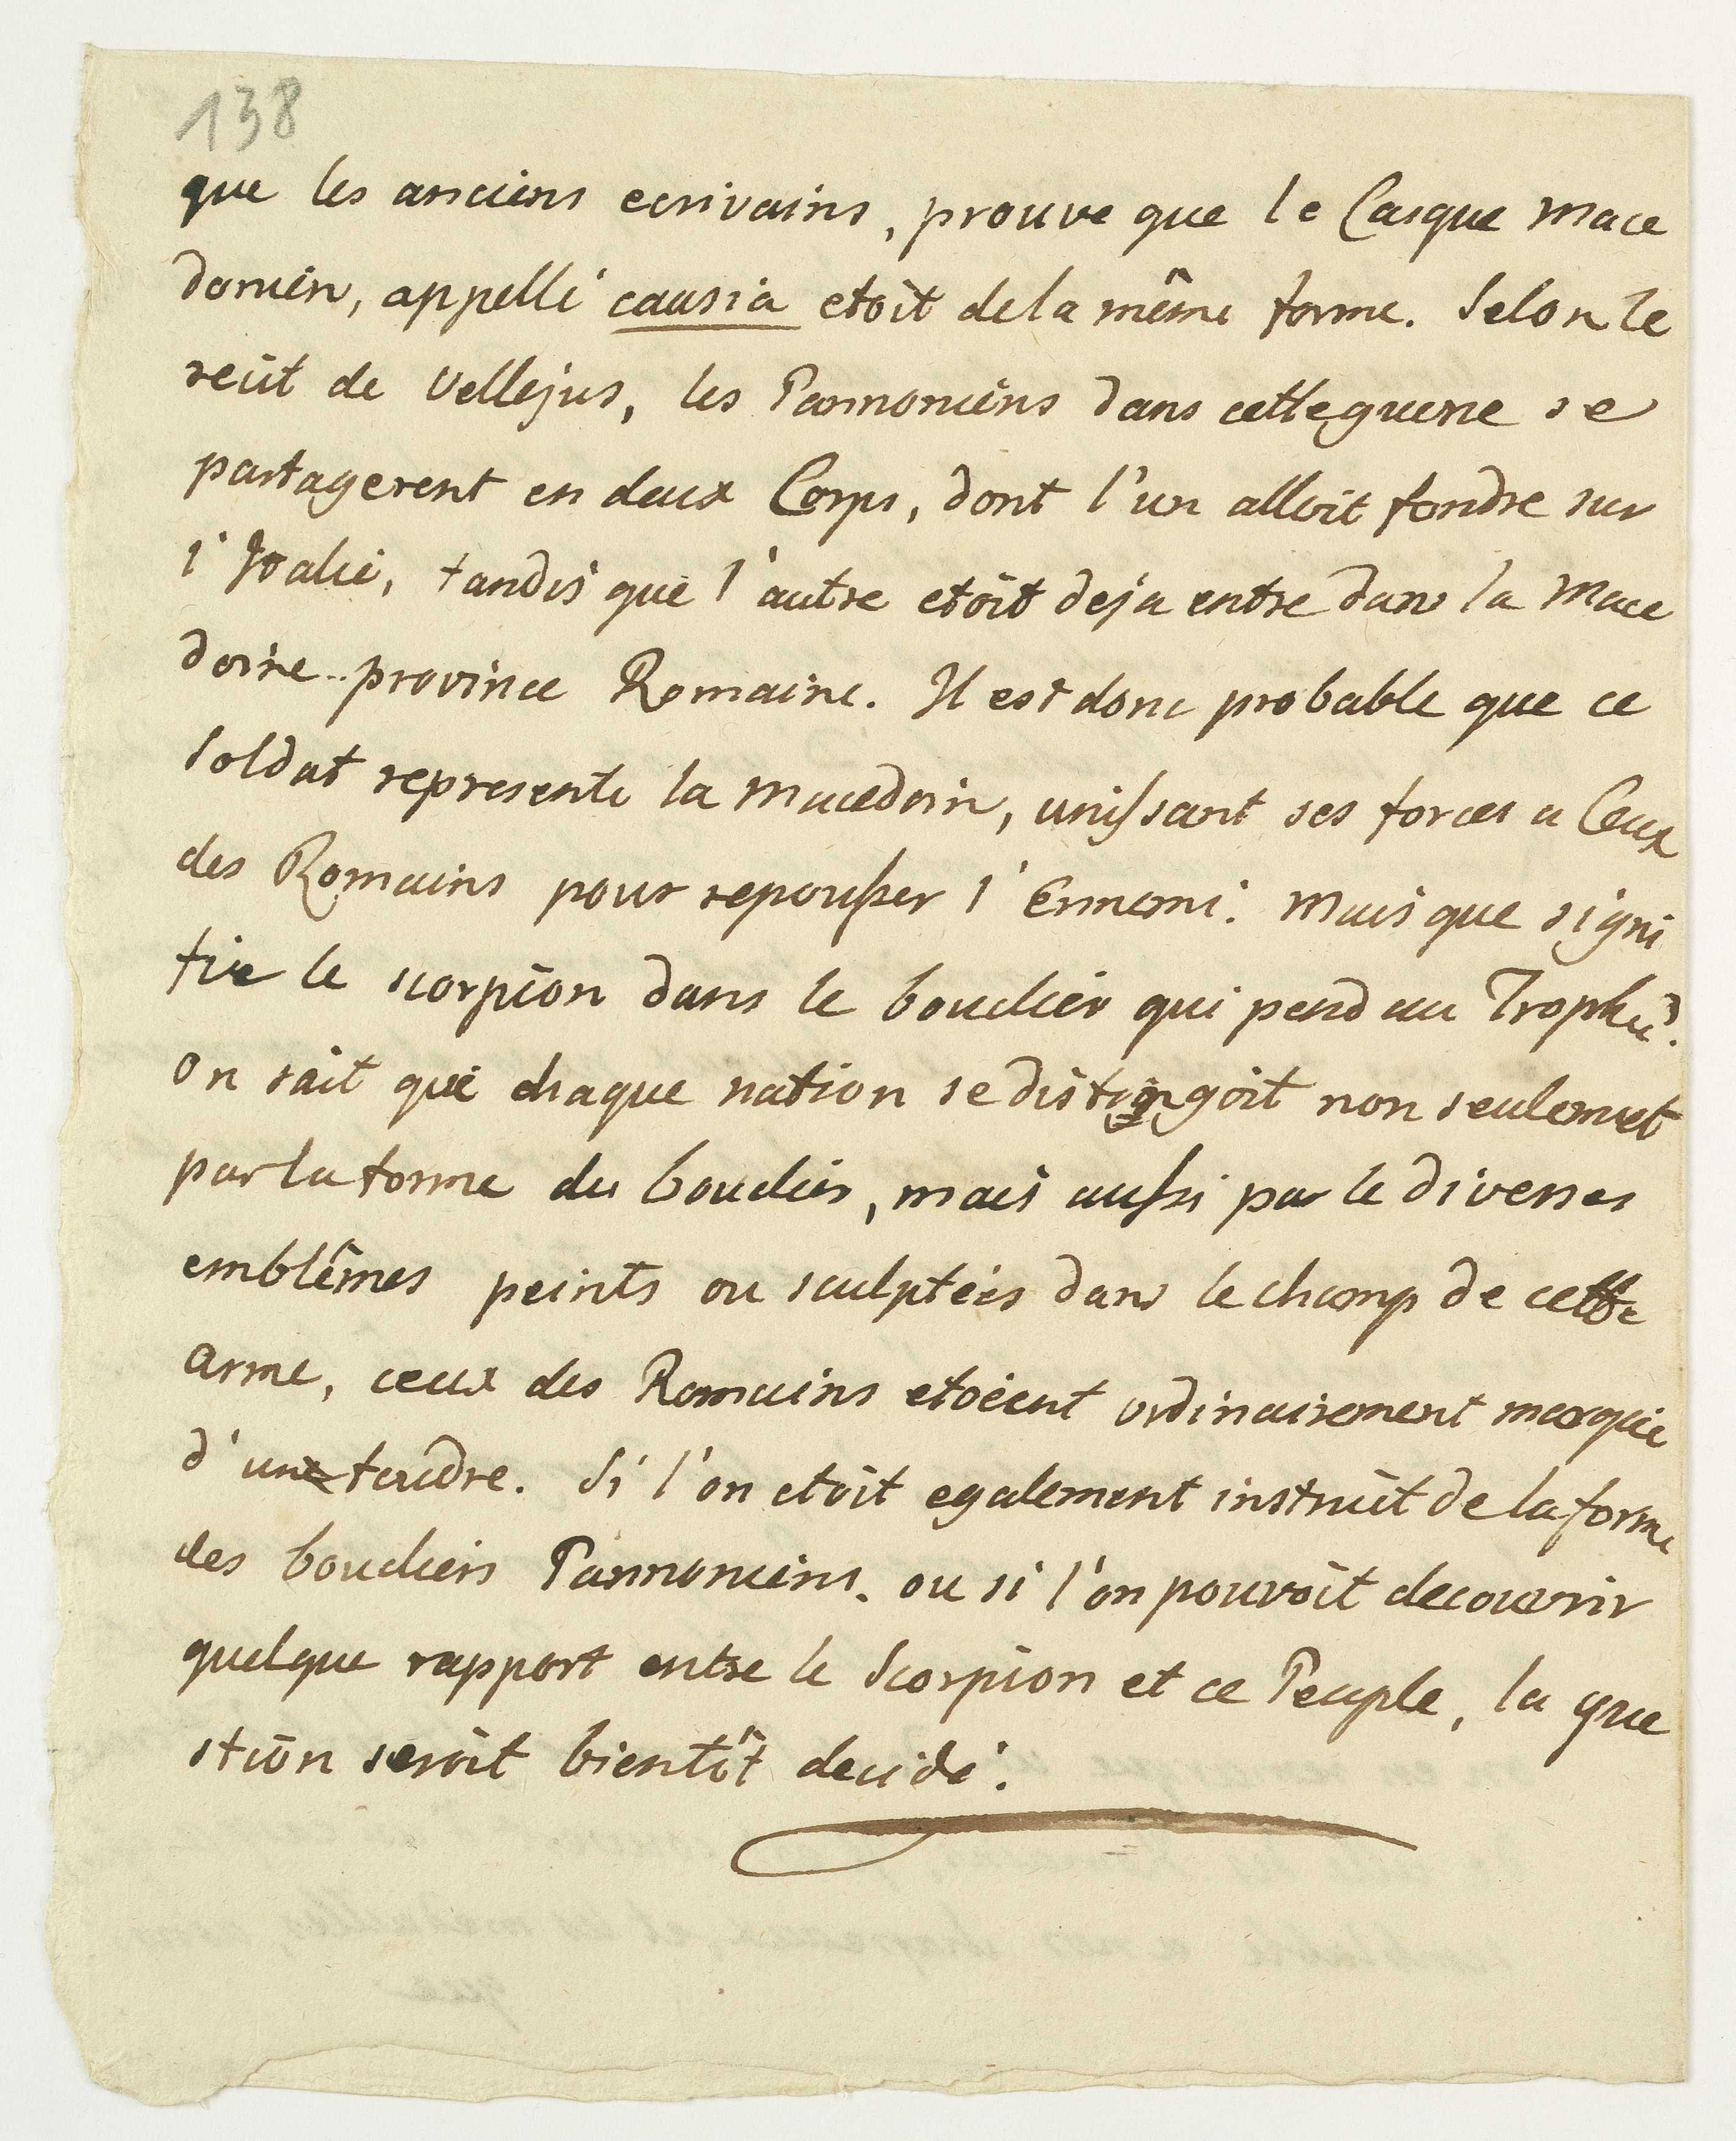 138
que les anciens ecrivains, prouve que le Casque Mace
donien, appellé causia etoit de la même forme. Selon le
recit de Vellejus, les Pannoniens dans cette guerre se
partagerent en deux Corps, dont l'un alloit fondre sur
l'Italie, tandis que l'autre etoit deja entre dans la Mace
doine province Romaine. Il est donc probable que ce
Soldat represente la Macedoin, unissant ses forces a Ceux
des Romains pour repousser l'Ennemi. Mais que signi
fie le scorpion dans le bouclier qui pend au Trophée?
on sait que chaque nation se distingoit non seulemet
par la forme du bouclier, mais aussi par le diverses
emblêmes peints ou sculptées dans le champ de cette
arme, ceux des Romains etoient ordinairement marquée
d'une foudre. Si l'on etoit egalement instruit de la forme
des boucliers Pannoniens. ou si l'on pouvoit decouvrir
quelque rapport entre le Scorpion et ce Peuple, la que
stion seroit bientôt decidé.